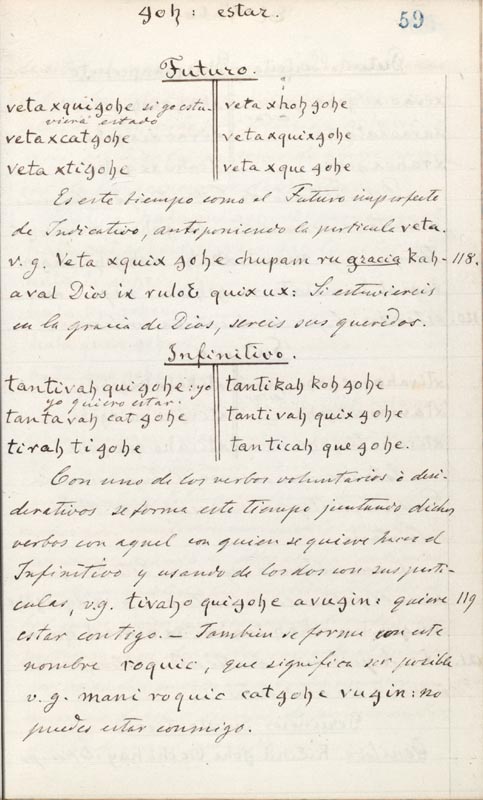 goh : estar.
59
Futuro.
veta xquigohe si yo estu- veta xhoh gohe
viera estado
veta xcatgohe veta xquixgohe
veta xtigohe veta xque gohe
Es este tiempo como el Futuro imperfecto
de Indicativo, anteponiendo la particula veta.
v. g. Veta xquix gohe chupam ru gracia kah- 118.
aval Dios ix ruloɛ quix ux: Si estuviereis
en la gracia de Dios, sereis sus queridos.
Infinitivo.
tantivah quigohe: yo tantikah koh gohe
yo quiero estar.
tantavah cat gohe tantivah quix gohe
tirah tigohe tanticah que gohe.
Con uno de los verbos voluntarios ò desi-
derativos se forma este tiempo juntando dichos
verbos con aquel con quien se quiere hacer el
Infinitivo y usando de los dos con sus parti-
culas, v.g. tivaho quigohe avugin: quiere 119
estar contigo. — Tambien se forma con este
nombre roquic, que significa ser posible
v. g. mani roquic catgohe vugin: no
puedes estar conmigo.